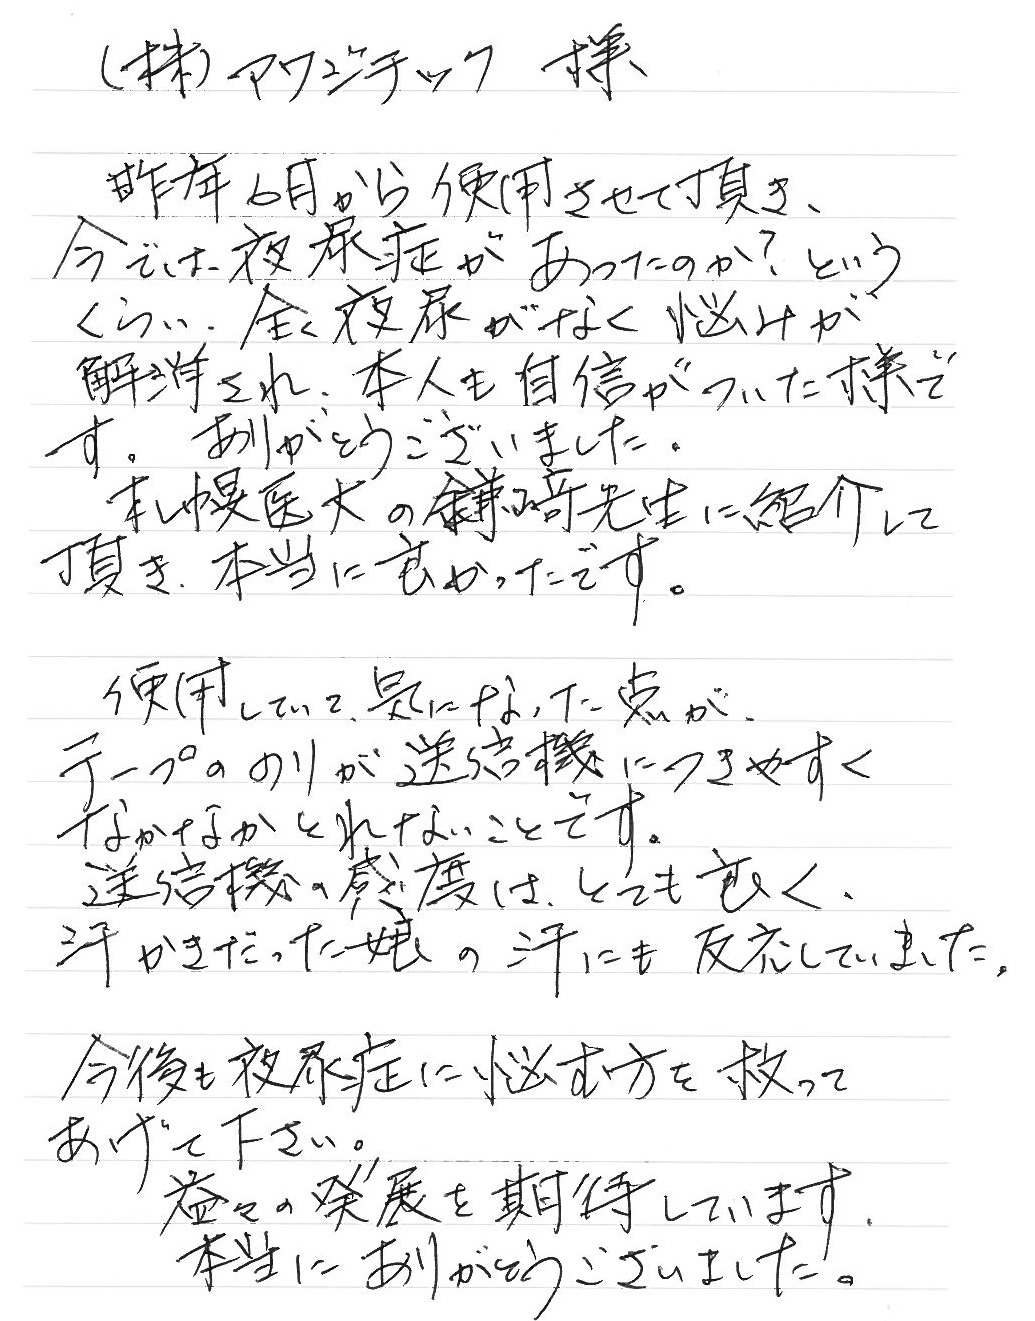 (株)アワジテック 様
昨年6月から使用させて頂き、
今では夜尿症があったのか?という
くらい、全く夜尿がなく悩みが
解消され、本人も自信がついた様で
す。ありがとうございました。
札幌医大の鎌﨑先生に紹介して
頂き、本当に良かったです。
使用していて、気になった点が、
テープののりが送信機につきやすく
なかなかとれないことです。
送信機の感度は、とても良く、
汗かきだった娘の汗にも反応していました。
今後も夜尿症に悩む方を救って
あげて下さい。
益々の発展を期待しています。
本当にありがとうございました。